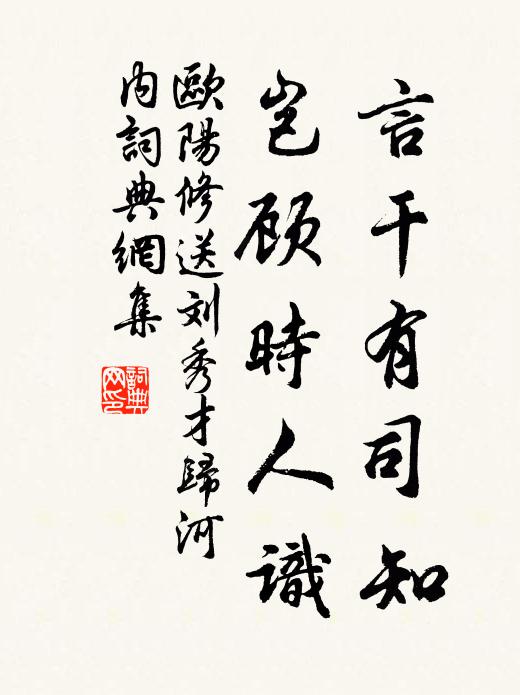 言干有司知
岂顾時人識
歐陽修送刘秀才歸河
内詞典網集
詞典
网印